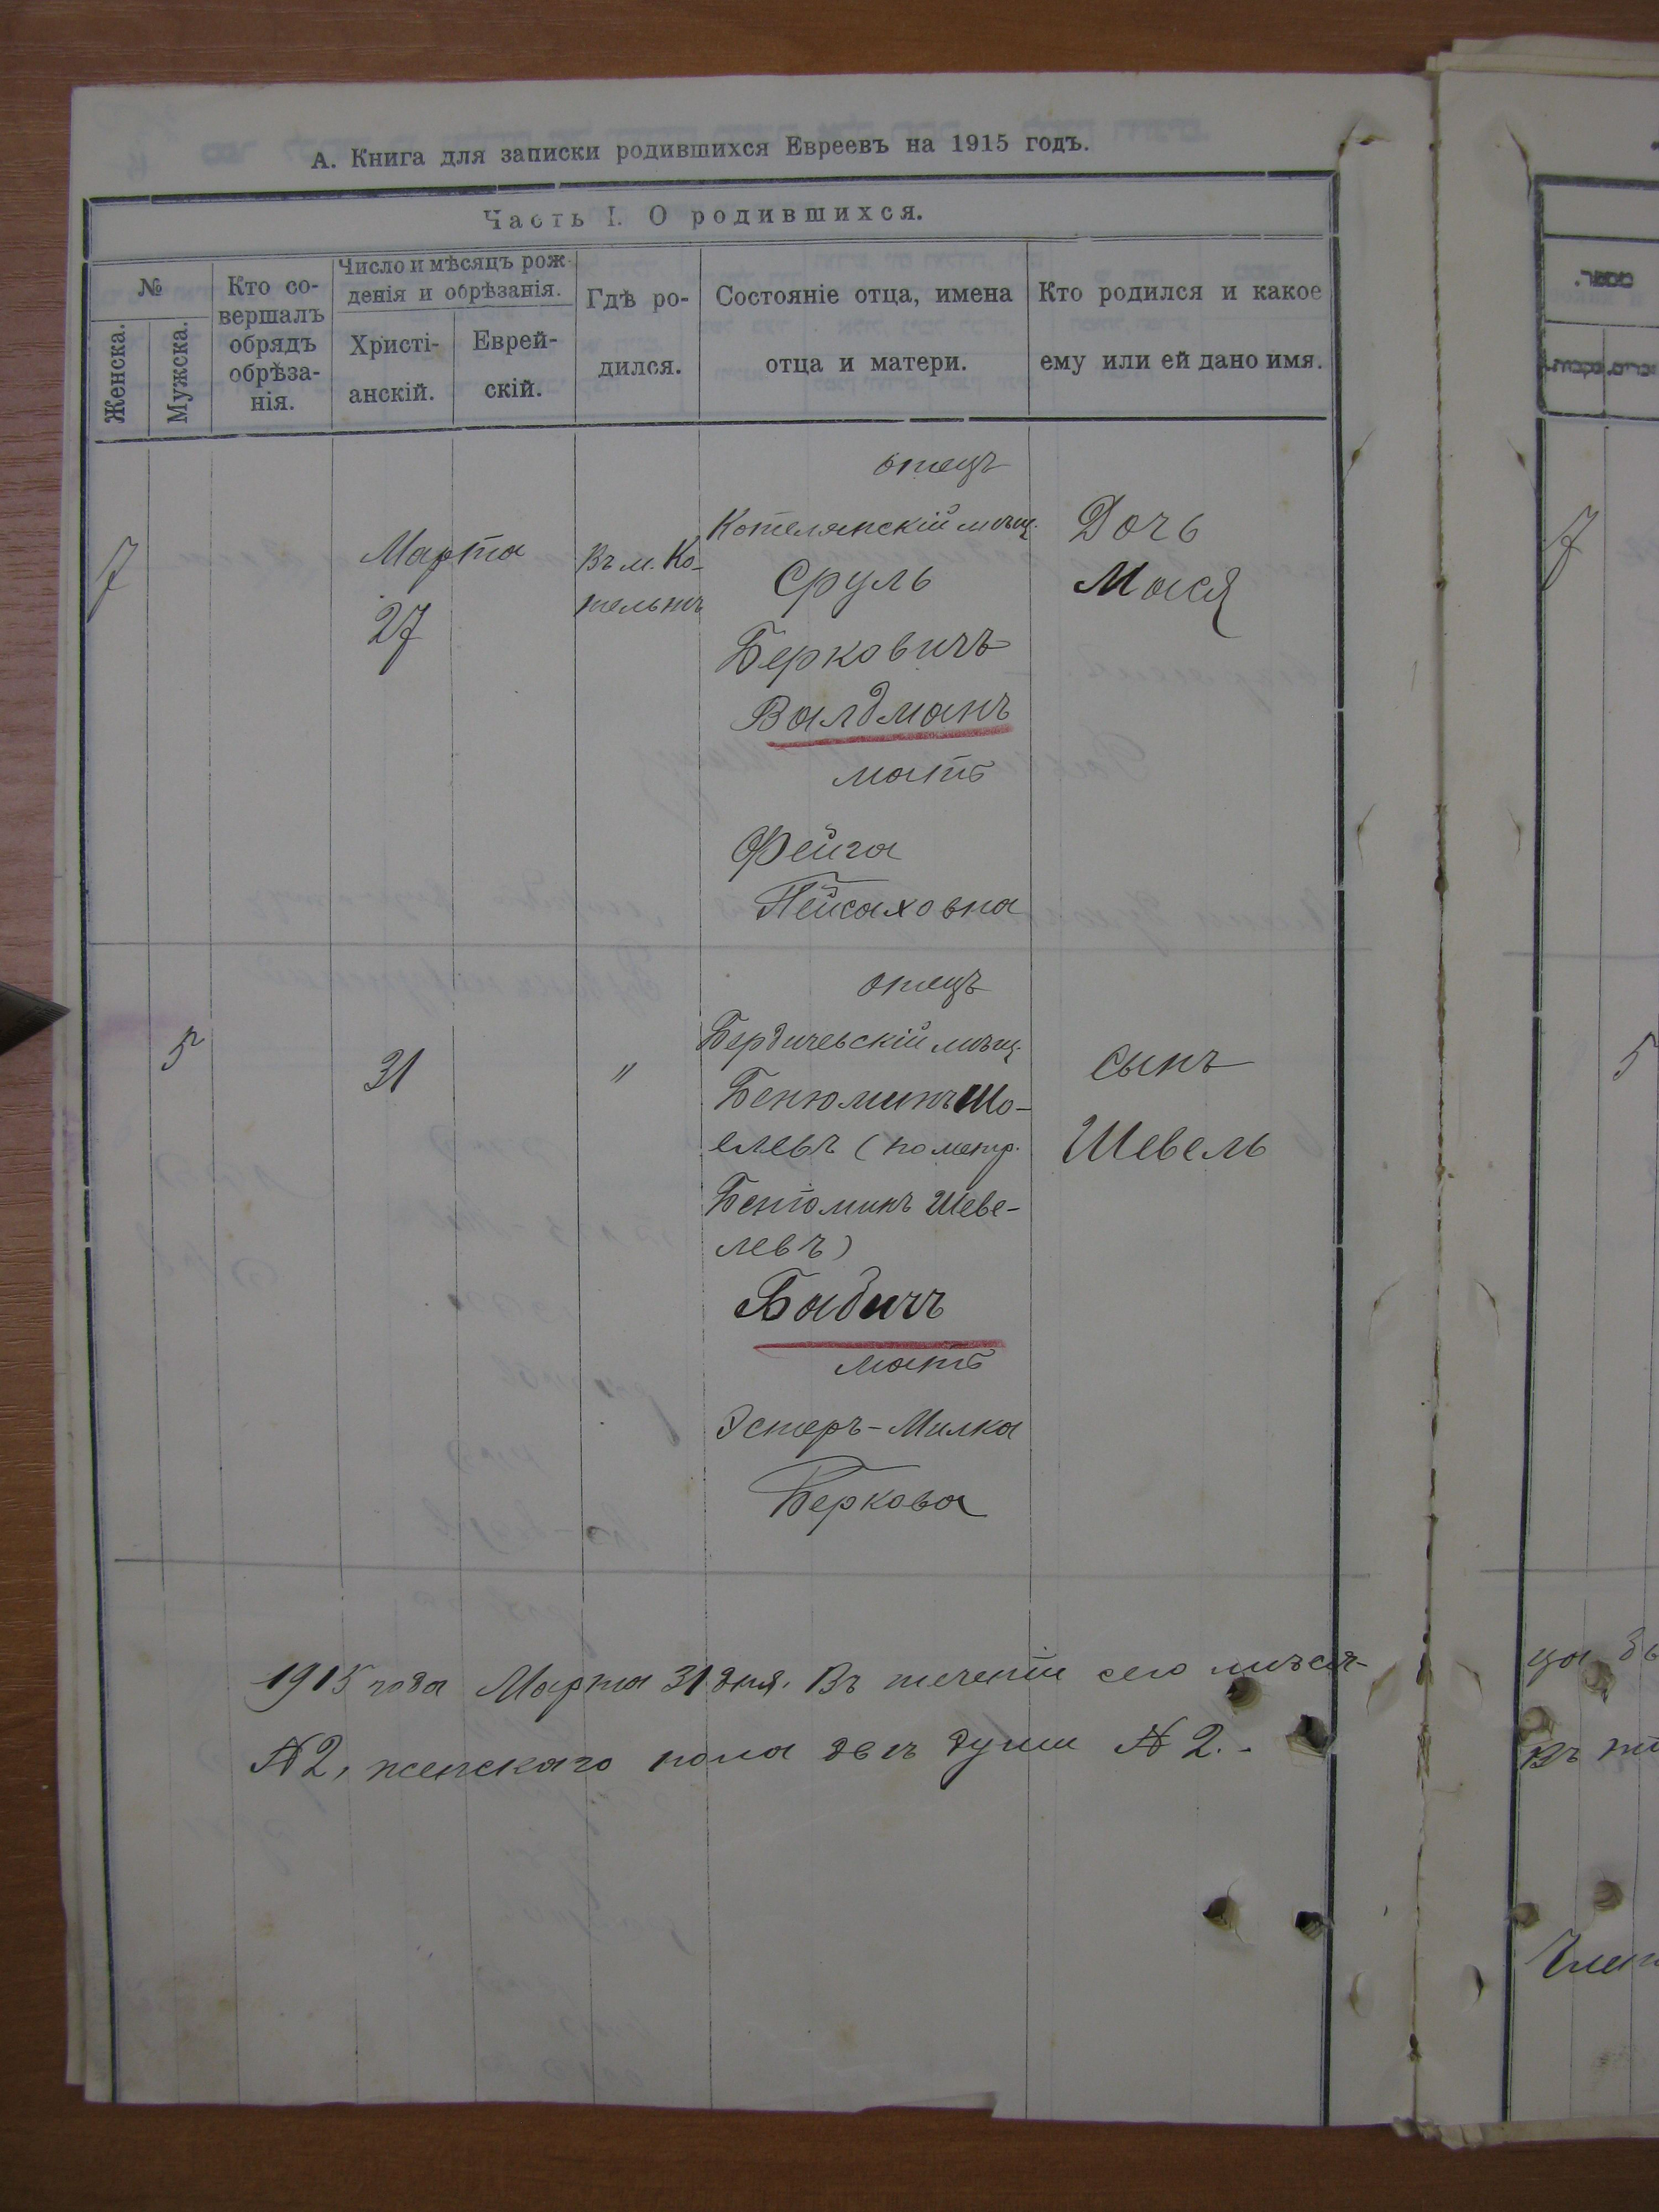 А. Книга для записки родившихся Евреевъ на 1915 годъ.
Часть I. О родившихся.
№
Женска.
Мужска.
Кто со-
вершалъ
обрядъ
обрѣза-
нія.
Число и мѣсяцъ рож-
денія и обрѣзанія.
Христі-
анскій.
Еврей-
скій.
Гдѣ ро-
дился.
Состояніе отца, имена
отца и матери.
Кто родился и какое
ему или ей дано имя.
7
Марта
27
Въ м. Ко-
тельнѣ
отецъ
Котелянскій мѣщ.
Сруль
Берковичъ
Валдманъ
мать
Фейга
Пейсаховна
Дочь
Мася
5
31
"
отецъ
Бердичевскій мѣщ.
Бенюминъ Шо-
елевъ (по метр.
Бентоминъ Шеве-
левъ)
Бабичъ
мать
Эстеръ-Милка
Беркова
сынъ
Шевель
1915 года Марта 31 дня. Въ теченіи сего мѣся-
№ 2, женскаго пола двѣ души № 2.-
7
5
ца
въ